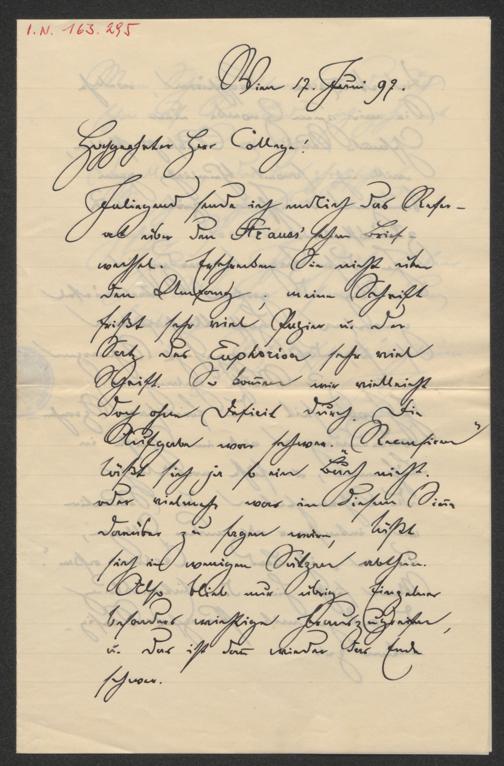 I.N. 163.295
Wien 17. Juni 97.
Hochgeehrter Herr College!
Inliegend sende ich endlich das Refer-
at über den Strauss'schen Brief-
wechsel. Erschrecken Sie nicht über
den Umfang; meine Schrift
frißt sehr viel Papier u. der
Satz des Euphorion sehr viel
Schrift. So kommen wir vielleicht
doch ohne Deficit durch. Die
Aufgabe war schwer. „Recensieren“
läßt sich ja so ein Buch nicht
oder vielmehr was in diesem Sinn
darüber zu sagen wäre, läßt
sich in wenigen Sätzen abthun.
Also blieb nur übrig Einzelnes
besonders wichtige herauszugreifen,
u. das ist dann wieder das Ende
schwer.